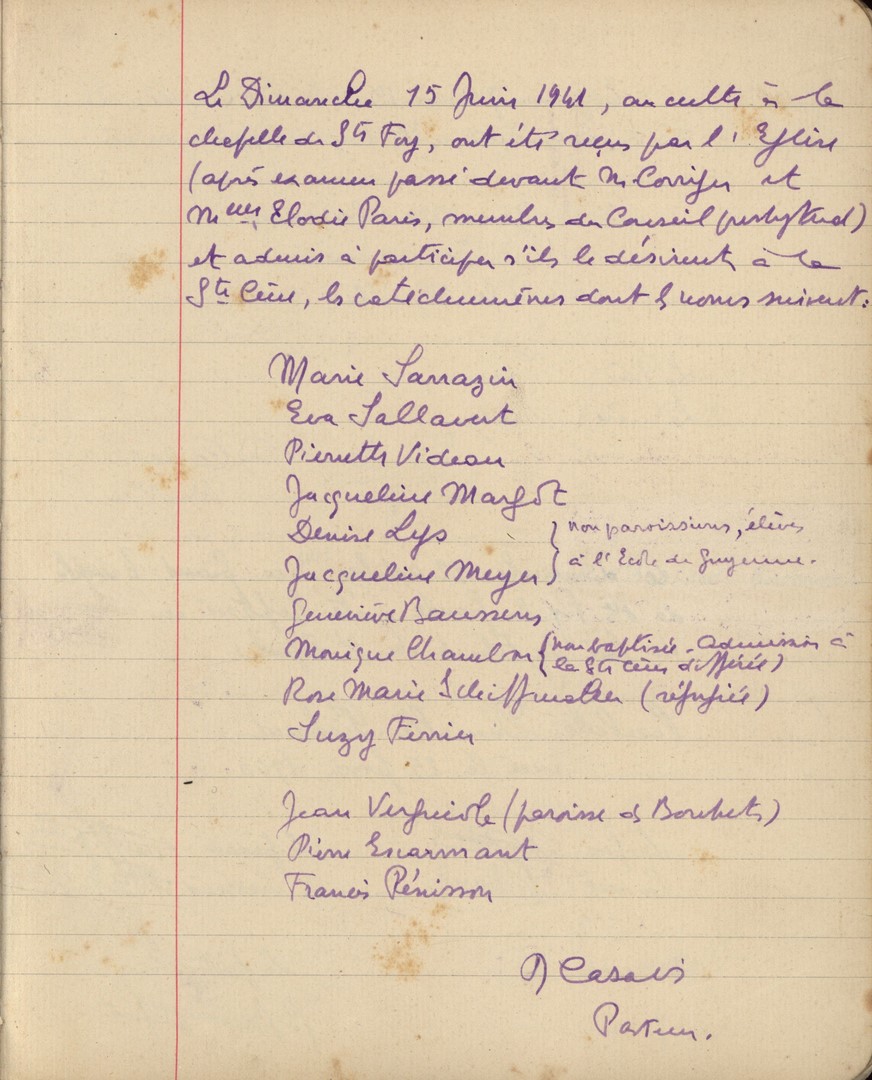 Le Dimanche 15 Juin 1941, au culte à la
chapelle de Ste Foy, ont été reçus par l'Eglise
(après examen passé devant M et
Mme Elodie Paris, membres du Conseil presbytéral)
et admis à participer s'ils le désirent, à la
Ste Cène, les catéchumènes dont les noms suivent:
Marie Sarrazin
Eva Sallavert
Pierrette Videau
Jacqueline Margot
Denise Lys } non paroissiens, élèves
Jacqueline Meyer } à l'Ecole de Guyenne.
Geneviève Baussens
Monique Chambon (non baptisée - admission à
la Ste Cène différée)
Rose Marie (réfugiée)
Suzy Ferrier
Jean (paroisse des)
Pierre Escarmant
Francis Pénisson
Casalis
Pasteur.